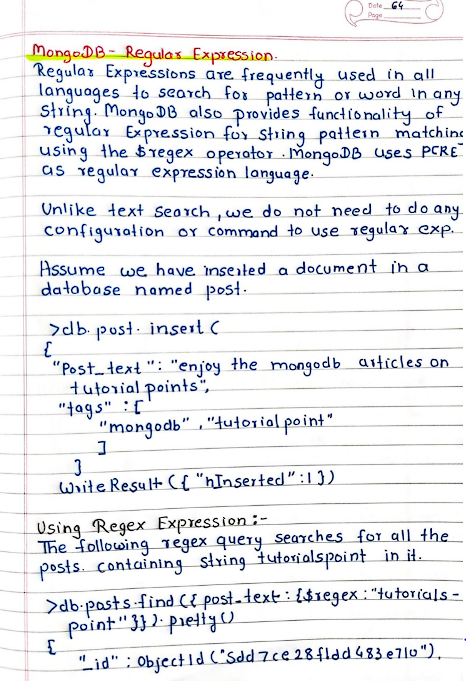 Date 64
Page
MongoDB - Regular Expression.
Regular Expressions are frequently used in all
languages to search for pattern or word in any
string. MongoDB also provides functionality of
regular Expression for string pattern matching
using the $regex operator. MongoDB uses PCRE
as regular expression language.
Unlike text search, we do not need to do any
configuration or command to use regular exp.
Assume we have inserted a document in a
database named post.
>db.post.insert (
{
"Post_text": "enjoy the mongodb articles on
tutorial points",
"tags" : [
"mongodb", "tutorial point"
]
}
Write Result ({ "nInserted" : 1 })
Using Regex Expression :-
The following regex query searches for all the
posts. containing string tutorialspoint in it.
>db.posts.find ({ post_text : {$regex : "tutorials-
point" }}). pretty ()
{
"_id" : ObjectId ("5dd7ce28f1dd483e710"),